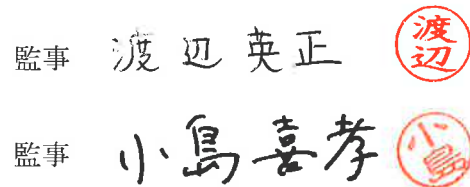 監事 渡辺英正 渡辺
監事 小島喜孝 小島